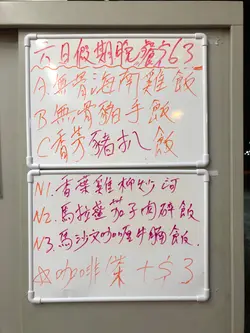 六日假期晚餐$63
A.無骨海南雞飯
B.無骨豬手飯
C香芳豬扒飯
N1.香葉雞柳炒河
N2.馬拉盞茄子肉碎飯
N3.馬沙文咖喱牛腩飯.
☆咖啡茶+$3